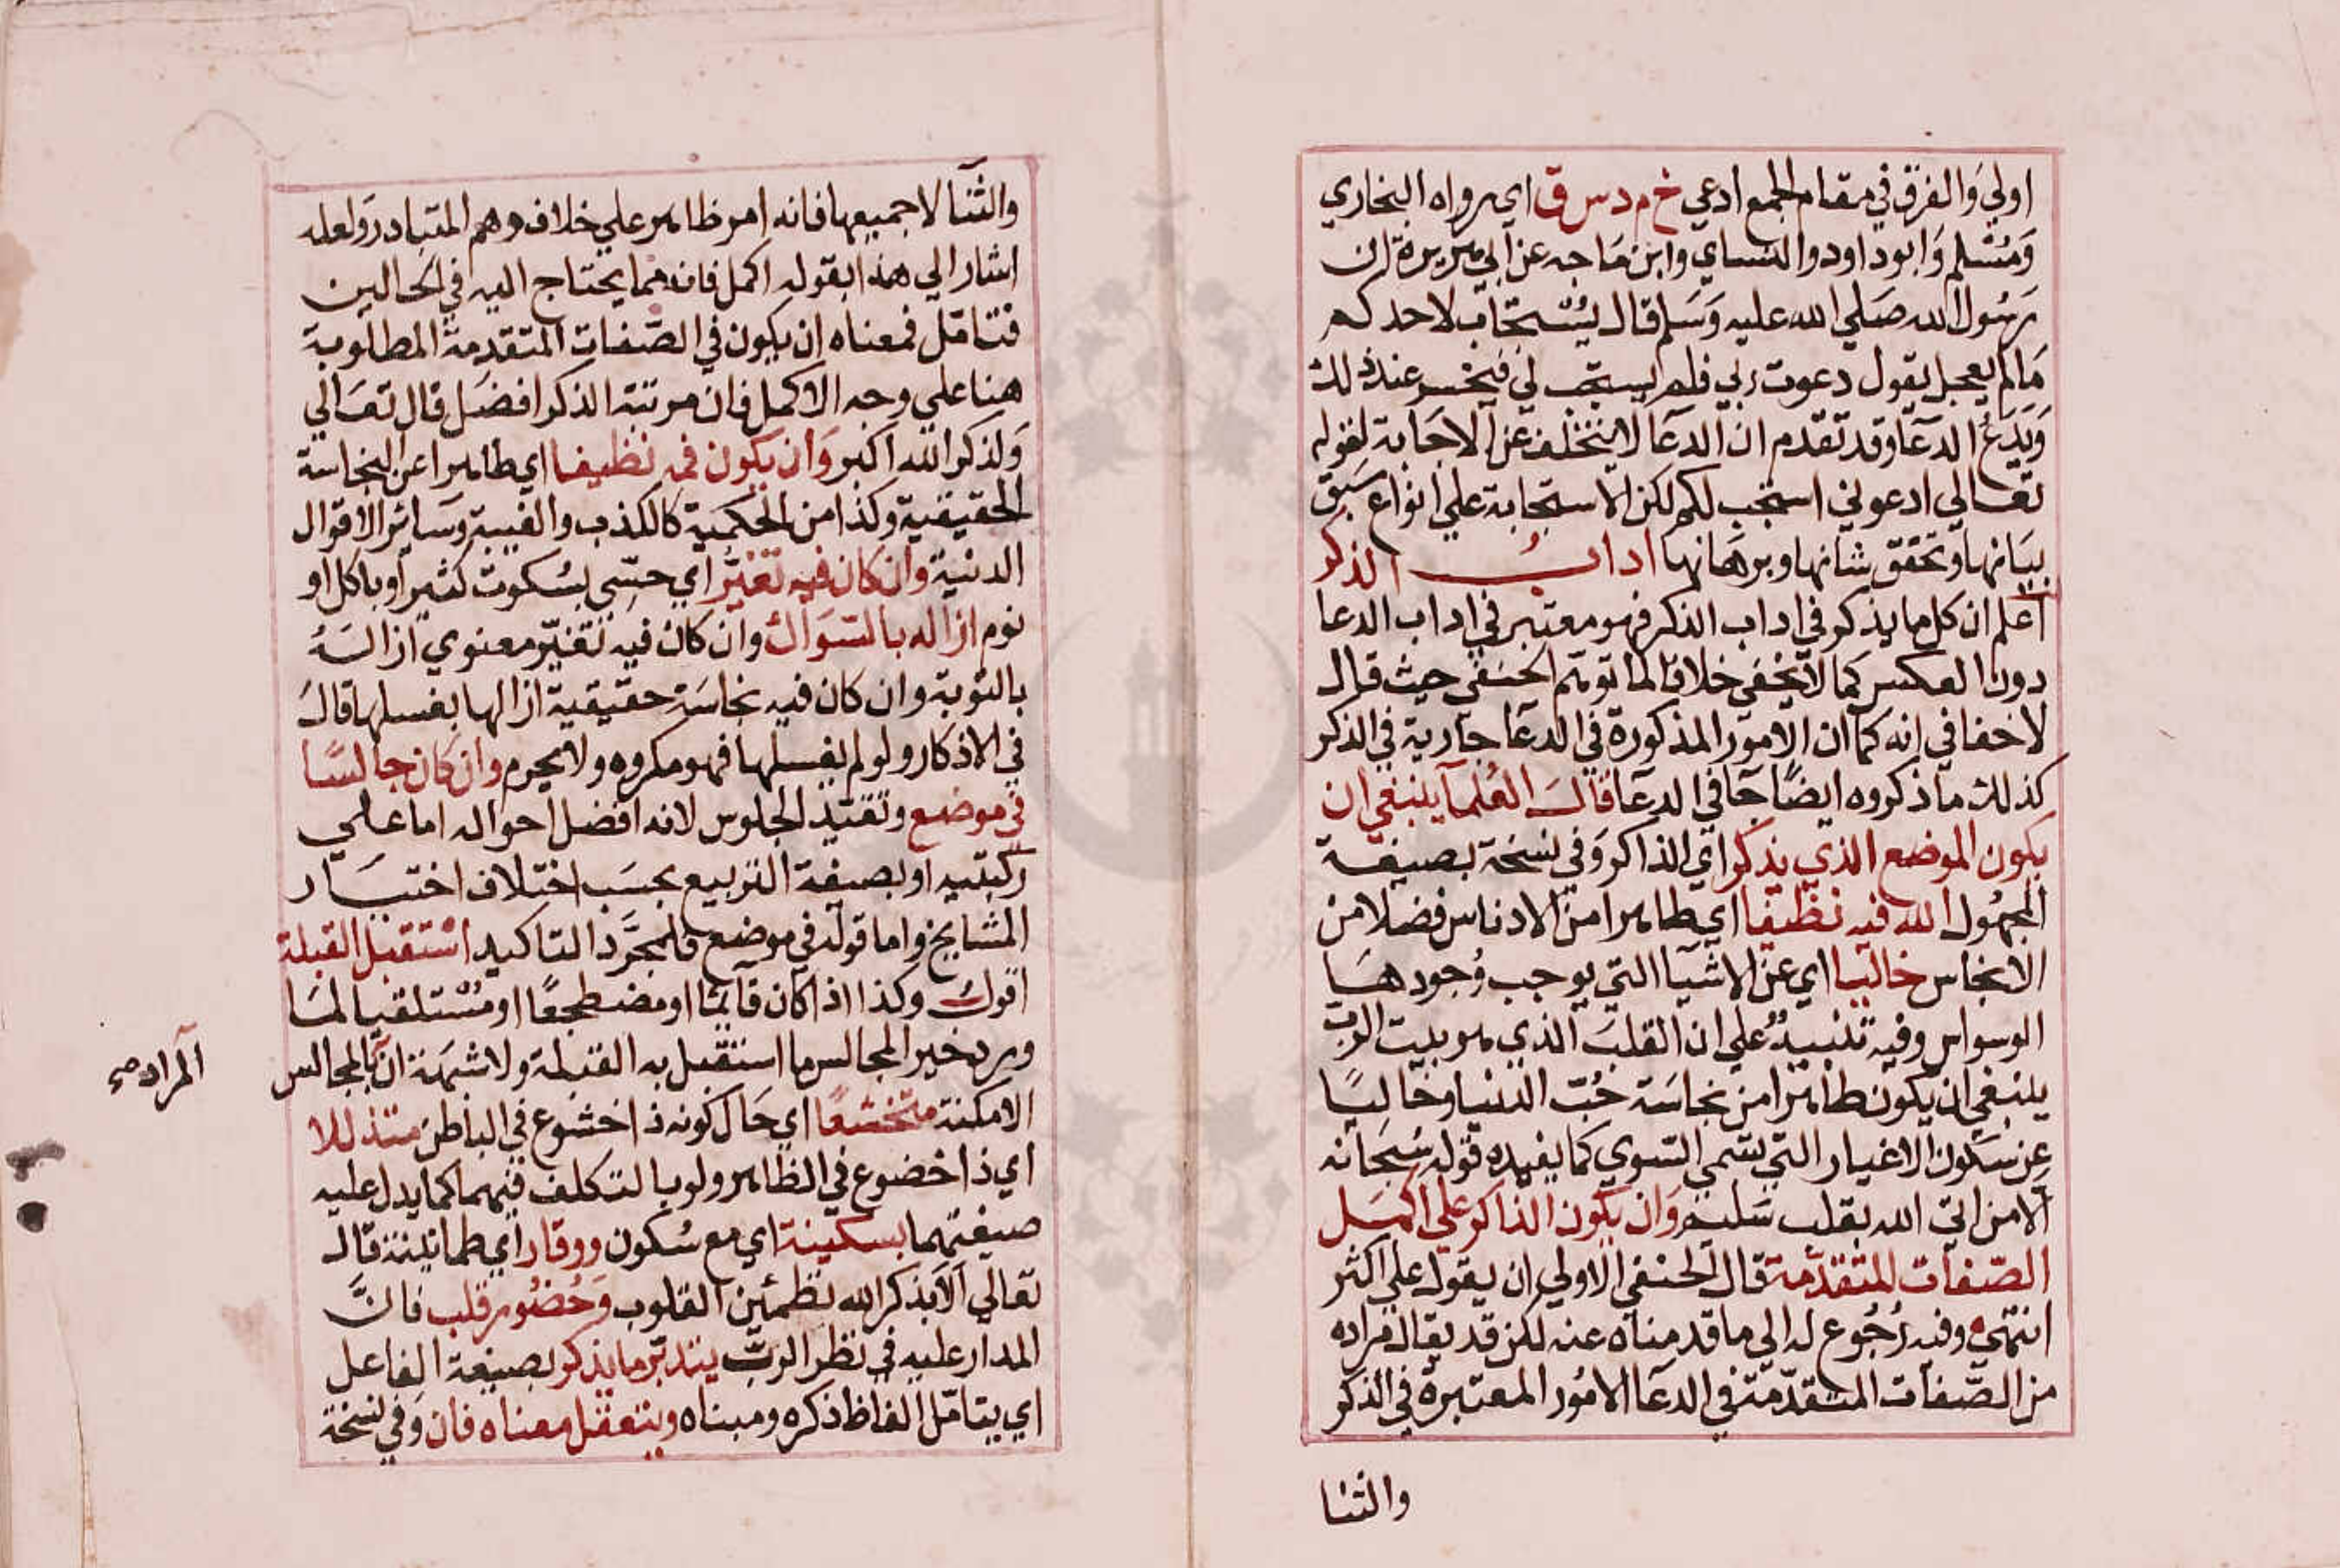 اولي وَالفرق في مقام الجمع ادعي خ م د س ق اي رواه البخاري
وَمُسْلم وَابوداود والنساي وابن مَاجه عن ابي هريرة ان
رَسُول الله صَلي الله عليه وَسَلم قال يُسْتجاب لاحدكم
مَالم يعجل يقول دعوت ربي فلم يستجب لي فيخسر عند ذلك
وَيَدَعُ الدعَآ وقد تقدم ان الدعَآ لا يتخلف عن الاجَابة لقوله
تعَالي ادعوني استجب لكم لكن الاستجابة علي انواع سَبَق
بيَانها وتحقق شانها وبرهَانها ادابُ الذكر
اعلم ان كل ما يذكر في اداب الذكر فهو معتبر في اداب الدعا
دون العكس كما لا يخفي خلافا لما توهم الحنفي حيث قال
لاخفا في انه كما ان الامور المذكورة في الدعَا جارية في الذكر
كذلك ما ذكروه ايضًا جَا في الدعَا قالَ العُلمآ ينبغي ان
يكون الموضع الذي يذكر اي الذاكر وَفي نسخة بصيغة
المجهُول الله فيه نظيفا اي طاهرا من الادناس فضلا من
الانجاس خاليا اي عن الاشيَآ التي يوجب وُجودهَا
الوسواس وفيه تنبيهٌ علي ان القلبَ الذي هو بيت الربّ
ينبغي ان يكون طاهرا من نجاسَة حُبّ الدنيا وخاليًا
عن سكون الاغيار التي تسمي السّوي كما يفيده قوله سُبحَانه
الا من اتي الله بقلب سَليم وَان يكون الذاكر علي اكمَل
الصّفات المتقدّمة قال الحنفي الاولي ان يقول علي اكثر
انتهي وفيه رُجُوع له الي ما قدمناه عنه لكن قد يقال مراده
من الصّفات المتقدّمة في الدعَا الامُور المعتبرة في الذكر
والثنا
والثّنا لاجميعها فانه امر ظاهر علي خلاف وهم المتبادر وَلعله
اشار الي هذا بقوله اكمل فانه مما يحتاج اليه في الحالين
فتامّل فمعناه ان يكون في الصّفات المتقدمة المطلوبة
هنا علي وجه الاكمل فان مرتبة الذكر افضَل قال تعَالي
وَلذكر الله اكبر وَان يكون فمه نظيفا اي طاهرا عن النجاسة
الحقيقية وكذا من الحكمية كالكذب والغيبة وسَائر الاقوال
الدنيّة وان كان فيه تغيُّر اي حسّي بسُكوت كثير او باكل او
نوم ازاله بالسّوَاك وان كان فيه تغيّر معنوي ازالهُ
بالتوبة وان كان فيه نجاسَة حقيقية ازالها بغسلها قالَ
في الاذكار ولو لم يغسلها فهو مكروه ولا يحرم وان كان جالسًا
في موضع وتقييد الجلوس لانه افضل احواله اما علي
ركبتيه او بصيغة التربيع بحسَب اختلاف اختيَار
المشايخ واما قوله في موضع فلمجَرَّد التاكيد استقبل القبلة
اقول وكذا اذا كان قآئما او مضطجعًا او مُسْتلقيا لمَا
ورد خير المجالس ما استقبل به القبلة ولا شبهَة ان بالمجالس
المراد صح
الامكنة متخشعًا اي حَال كونه ذا خشوع في الباطن متذللا
اي ذا خضوع في الظاهر ولو بالتكلف فيهما كما يدل عليه
صيغتهما بسكينة اي مع سُكون ووقار اي طمانينة قال
تعَالي الَا بذكر الله تطمئن القلوب وَحُضُور قلب فانَّ
المدار عليه في نظر الربّ يتدبّر ما يذكر بصيغة الفاعل
اي يتامّل الفاظ ذكره ومبناه ويتعقل معناه فان وَفي نسخة